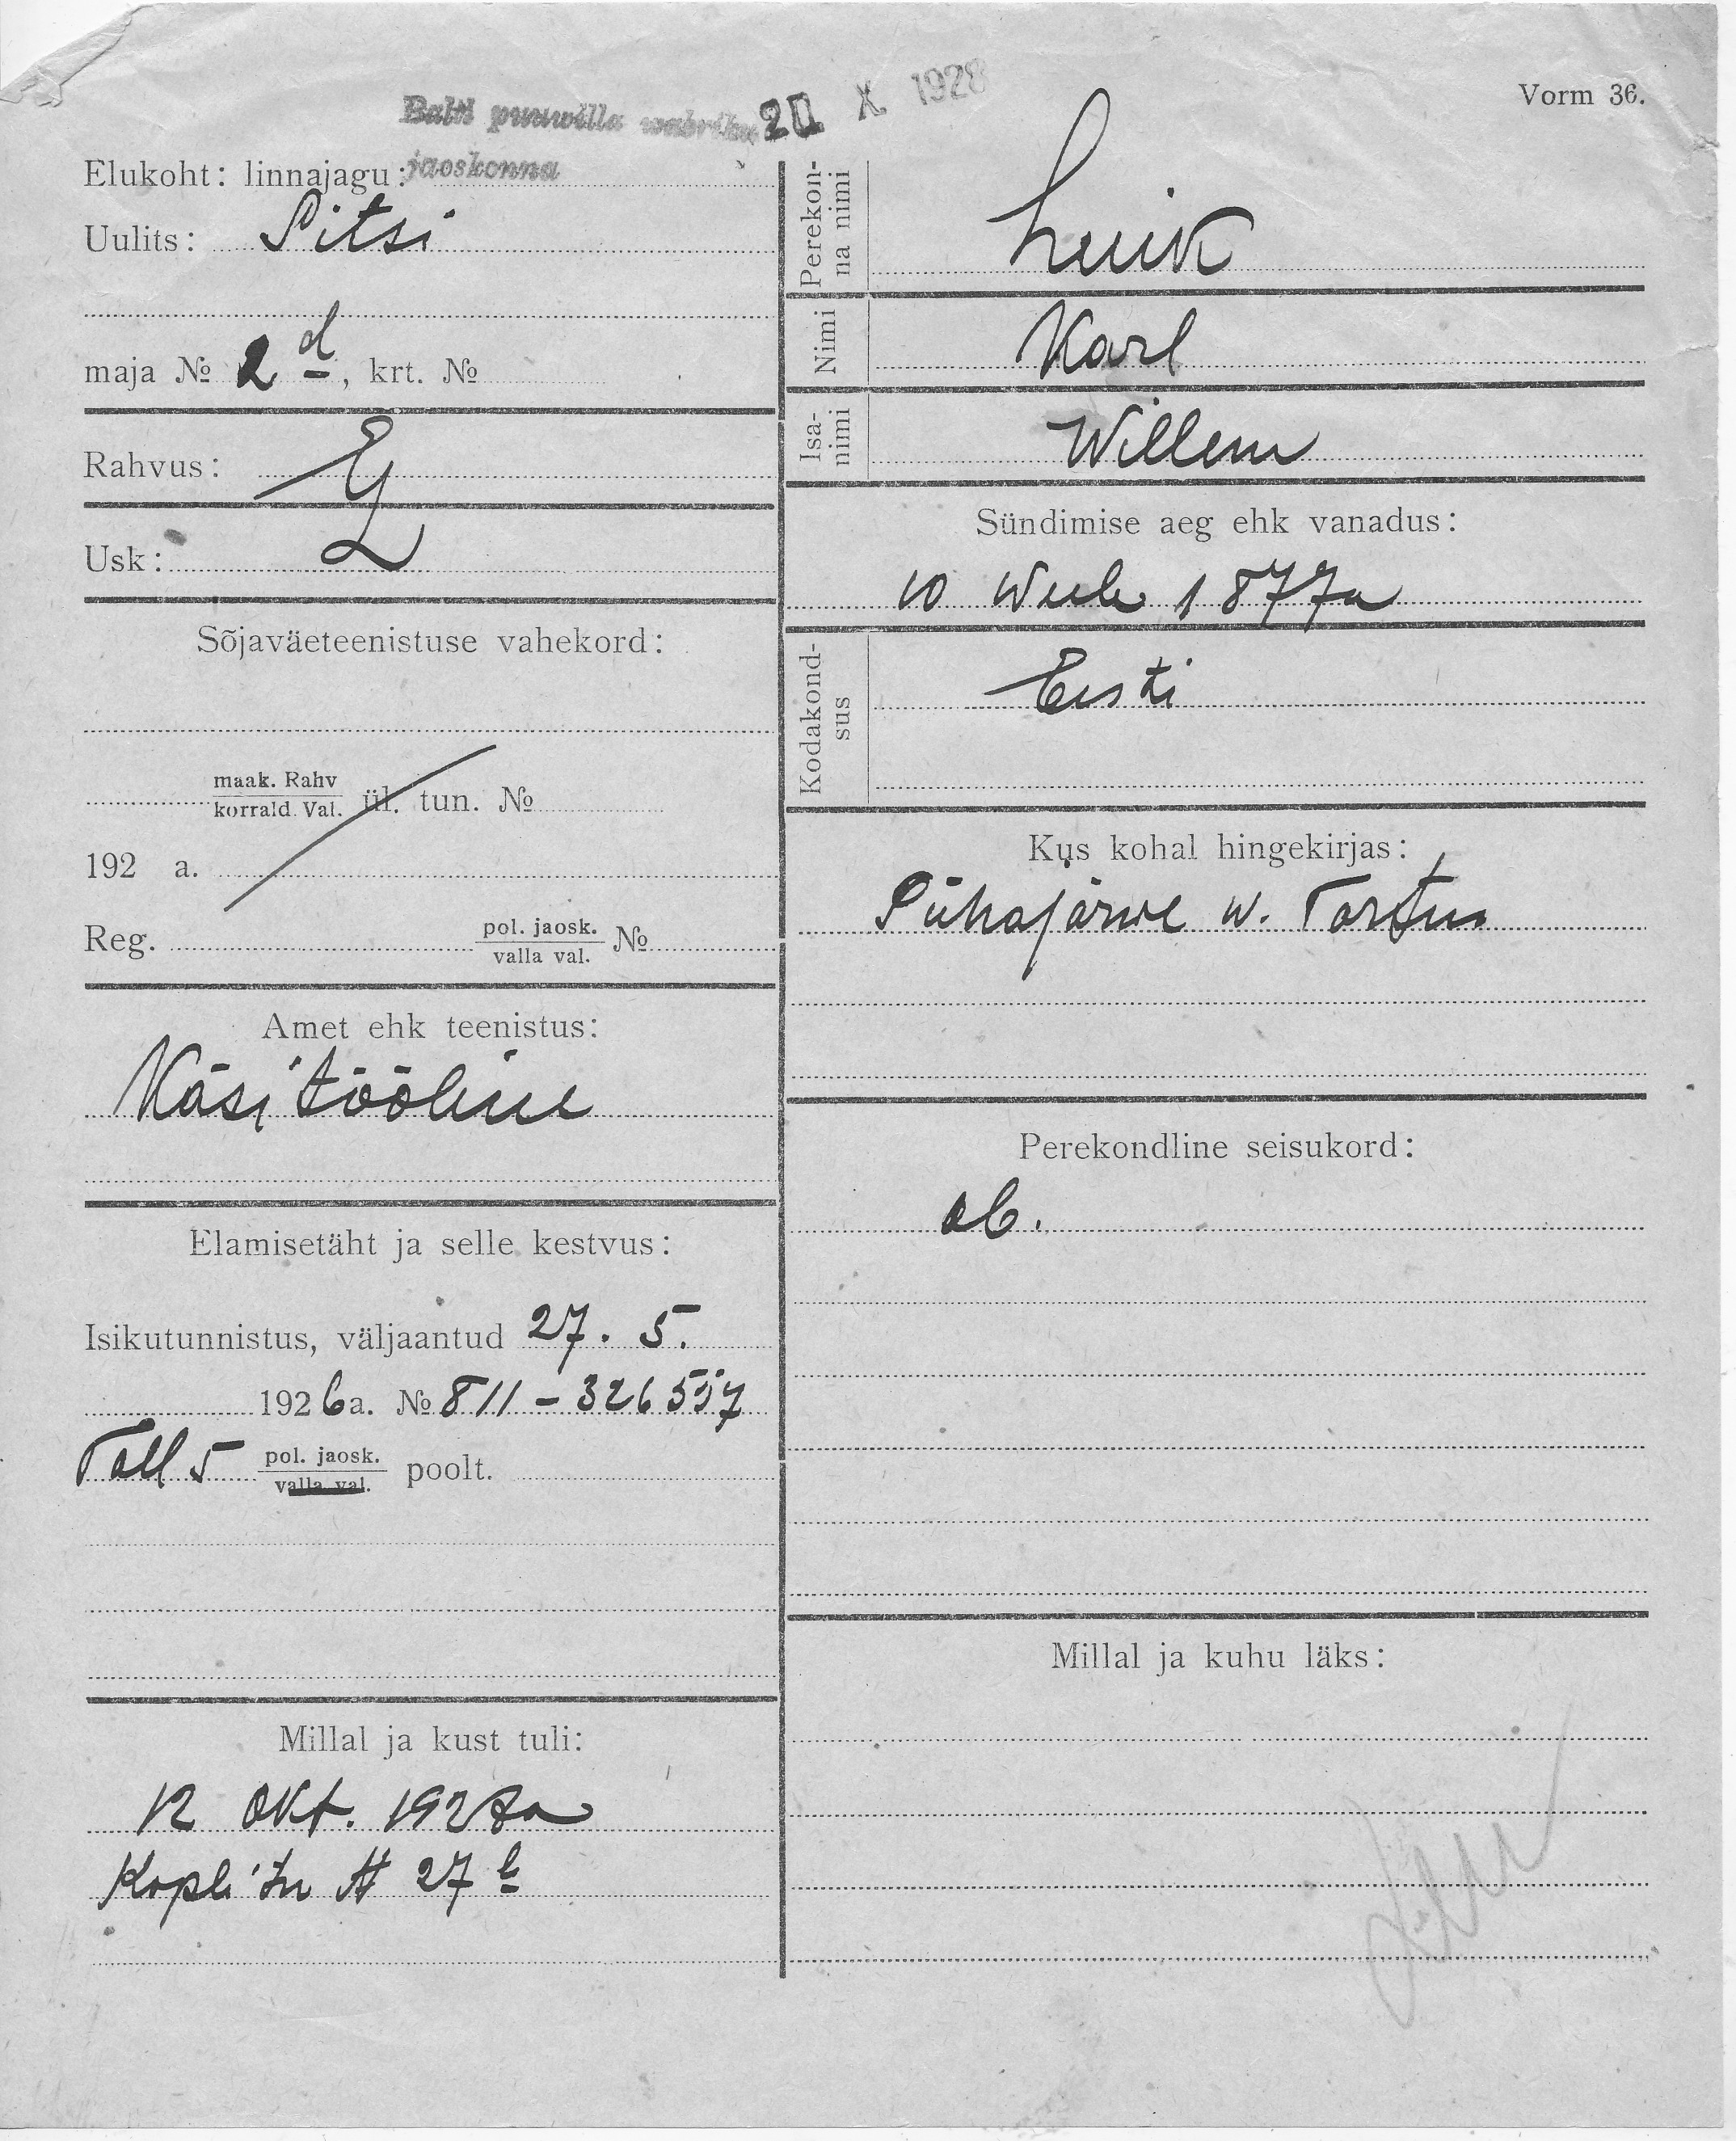 Balti puuwilla wabriku 20 X 1928
jaoskonna
Vorm 36.
Elukoht: linnajagu:
Uulits: Sitsi
maja № 2 d, krt. №
Rahvus: E
Usk: L
Sõjaväeteenistuse vahekord:
maak. Rahv
korrald. Val. ül. tun. №
192 a.
Reg. pol. jaosk. №
valla val.
Amet ehk teenistus:
Käsitööline
Elamisetäht ja selle kestvus:
Isikutunnistus, väljaantud 27. 5.
1926 a. № 811 – 326557
Tall 5 pol. jaosk. poolt.
valla val.
Millal ja kust tuli:
12 Okt. 1928a
Kopli tn № 27 b
Perekon-
na nimi
Luik
Nimi Karl
Isa-
nimi
Willem
Sündimise aeg ehk vanadus:
10 Weeb 1877a
Kodakond-
sus
Eesti
Kus kohal hingekirjas:
Pühajärwe w. Tartus
Perekondline seisukord:
ab.
Millal ja kuhu läks: